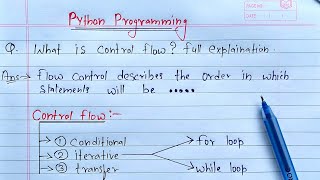 Python Programming
Q. What is control flow? full explaination.
Ans→ flow control describes the order in which
statements will be .....
Control flow :-
→ ① conditional
→ ② iterative → for loop
→ ③ transfer → while loop